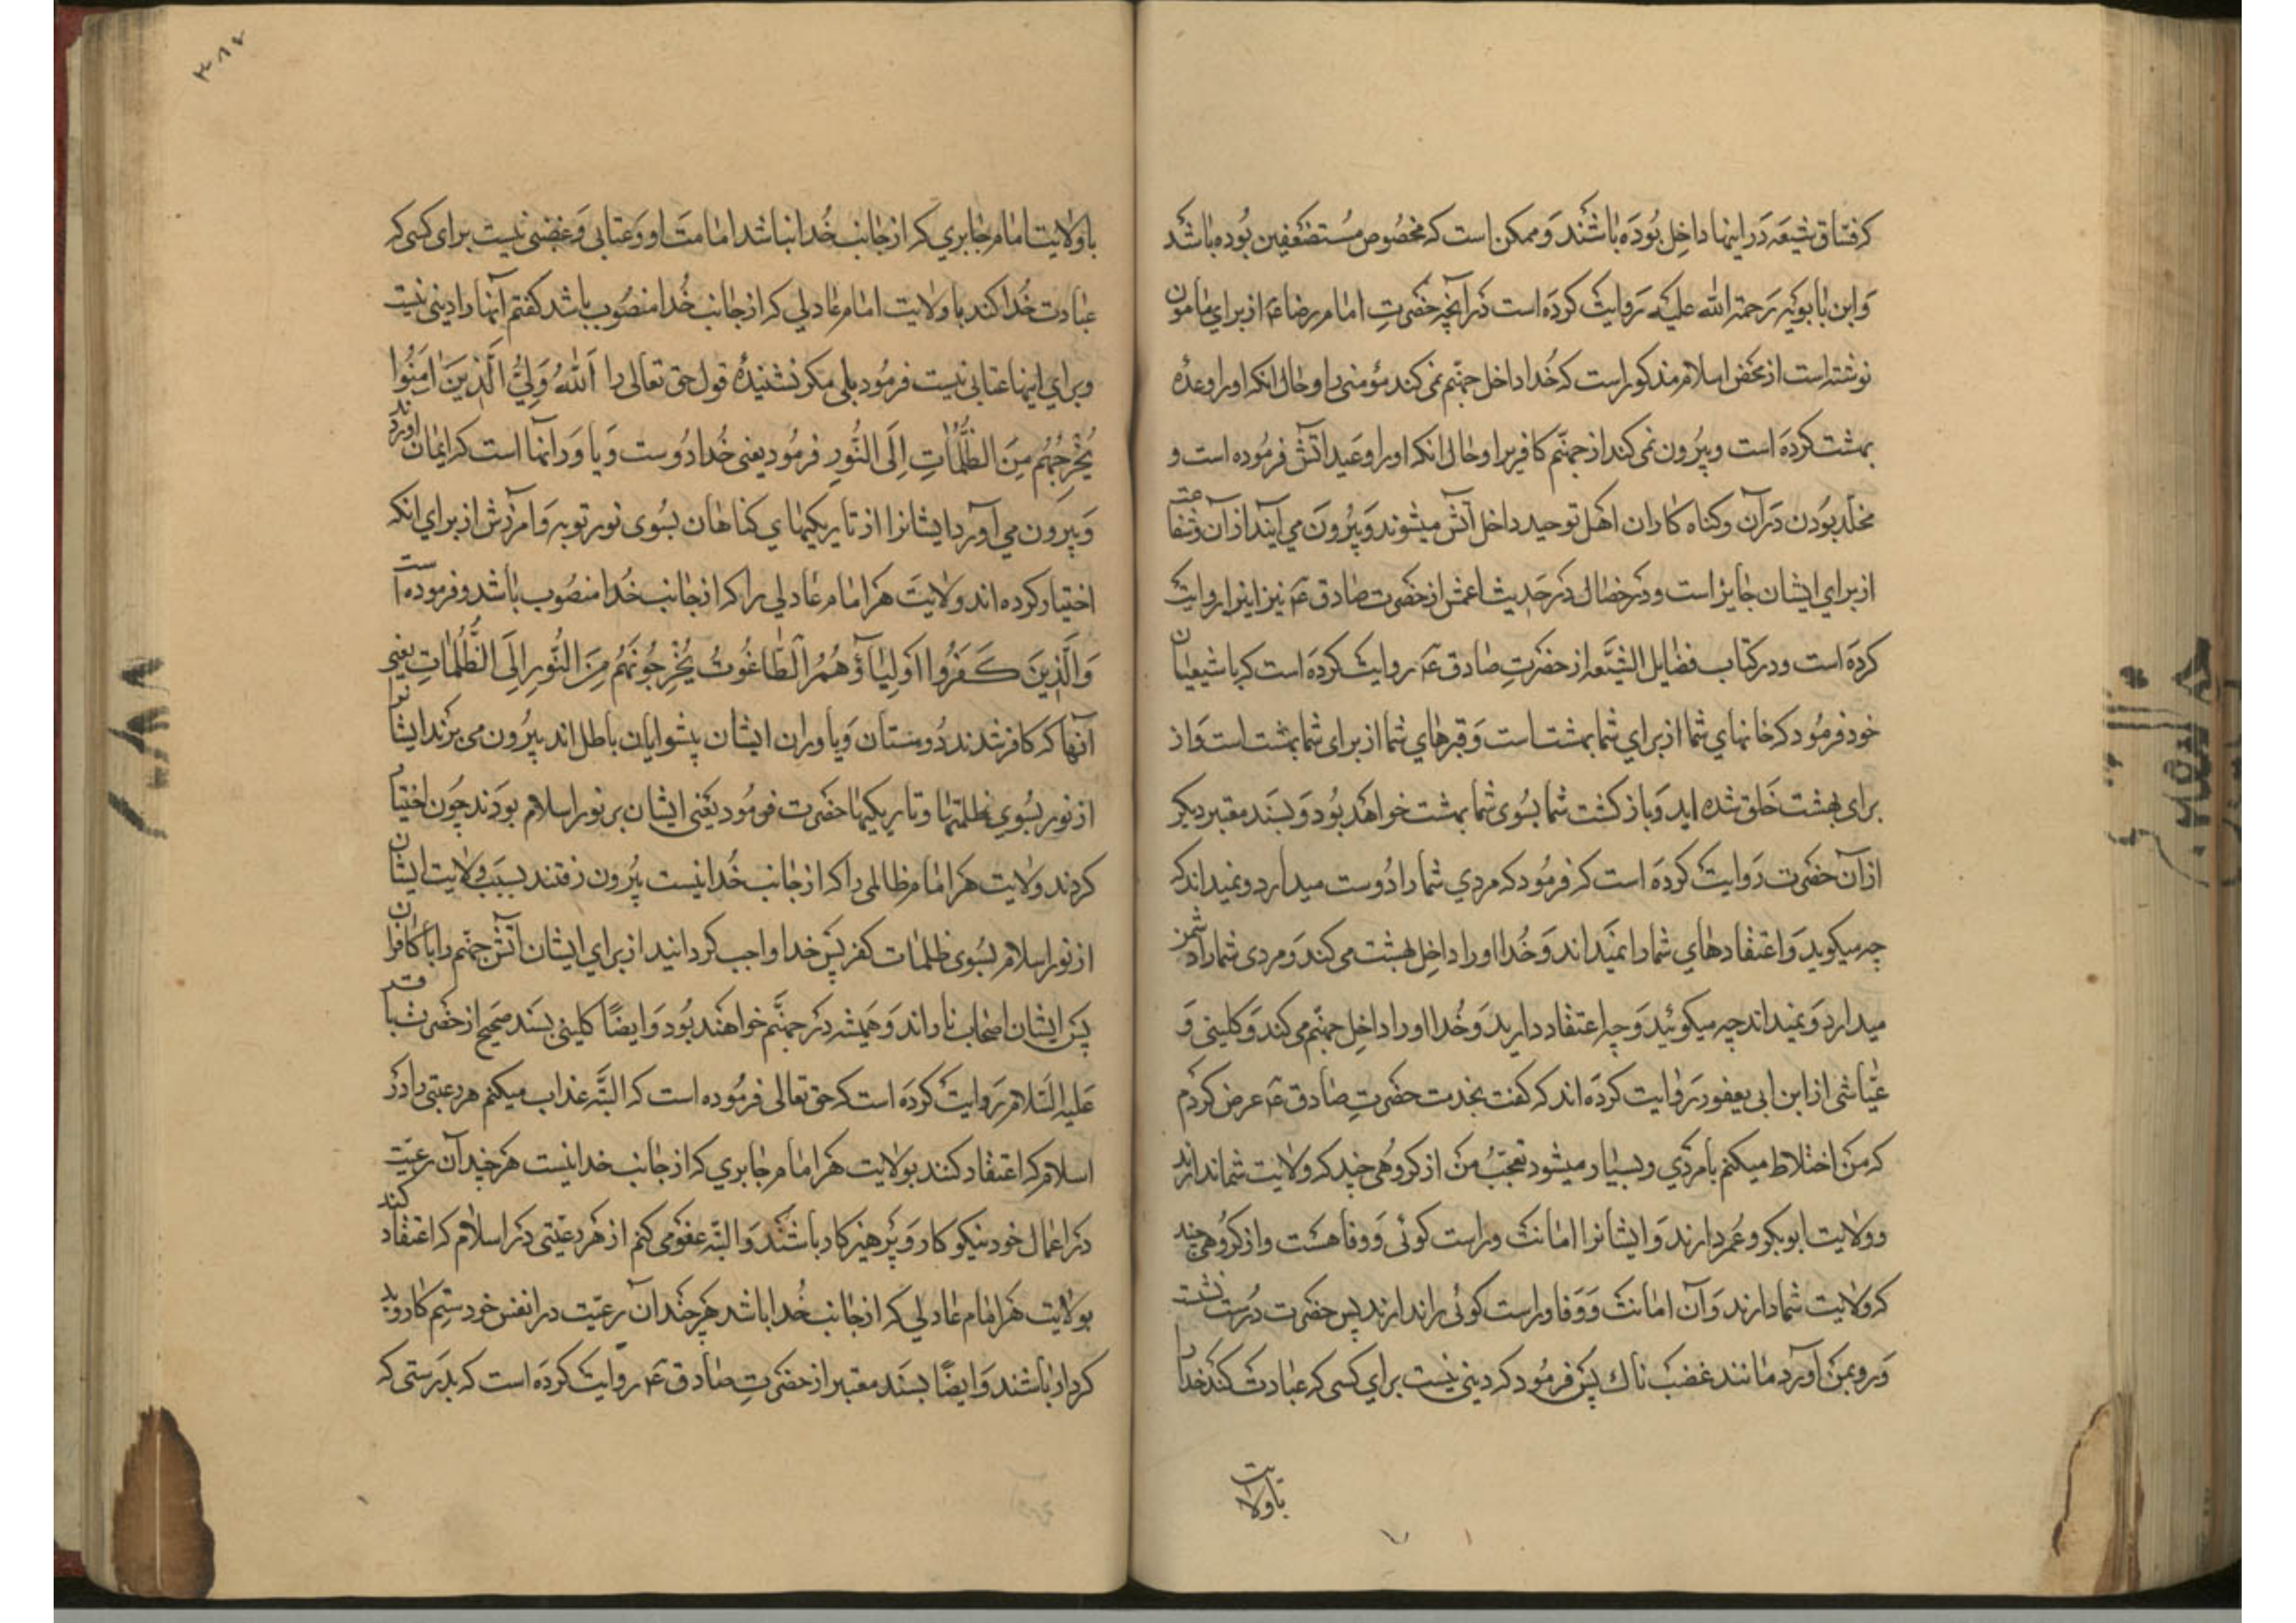 که فساق شیعه در اینها داخل بوده باشند و ممکن است که مخصوص مستضعفین بوده باشد
و ابن بابویه رحمة الله علیه روایت کرده است در آنچه حضرت امام رضا ع از برای مامون
نوشته است از محض اسلام مذکور است که خدا داخل جهنم نمی کند مؤمنی را و حال آنکه او را وعدهٔ
بهشت کرده است و بیرون نمی کند از جهنم کافریرا و حال آنکه او را وعید آتش فرموده است و
مخلد بودن در آن و گناه کاران اهل توحید داخل آتش میشوند و بیرون می آیند از آن و شفاعت
از برای ایشان جایز است و در خصال در حدیث اعمش از حضرت صادق ع نیز اینرا روایت
کرده است و در کتاب فضایل الشیعه از حضرت صادق ع روایت کرده است که با شیعیان
خود فرمود که خانهای شما از برای شما بهشت است و قبرهای شما از برای شما بهشت است و از
برای بهشت خلق شده اید و بازگشت شما بسوی شما بهشت خواهد بود و بسند معتبر دیگر
از آن حضرت روایت کرده است که فرمود که مردی شما را دوست میدارد و نمیداند که
چه میگوید و اعتقادهای شما را نمیداند و خدا او را داخل بهشت می کند و مردی شما را دشمن
میدارد و نمیداند چه میگوئید و چه اعتقاد دارید و خدا او را داخل جهنم می کند و کلینی و
عیاشی از ابن ابی یعفور روایت کرده اند که گفت بخدمت حضرت صادق ع عرض کردم
که من اختلاط میکنم با مردی و بسیار میشود تعجب من از گروهی چند که ولایت شما ندارند
و ولایت ابوبکر و عمر دارند و ایشانرا امانت و راست گوئی و وفا هست و از گروهی چند
که ولایت شما دارند و آن امانت و وفا و راست گوئی را ندارند پس حضرت درست نشست
و رو بمن آورد مانند غضب ناك پس فرمود که دینی نیست برای کسی که عبادت کند خدا را
با ولایت
۳۸۷
با ولایت امام جابری که از جانب خدا نباشد امامت او و عتابی و غضبی نیست برای کسی که
عبادت خدا کند با ولایت امام عادلی که از جانب خدا منصوب باشد گفتم آنها را دینی نیست
و برای اینها عتابی نیست فرمود بلی مگر نشنیدهٔ قول حق تعالی را اَللّٰهُ وَلِیُّ الَّذِینَ اٰمَنُوا
یُخْرِجُهُم مِنَ الظُّلُمٰاتِ اِلَی النُّورِ فرمود یعنی خدا دوست و یاور آنها است که ایمان آورده اند
و بیرون می آورد ایشانرا از تاریکیهای گناهان بسوی نور توبه و آمرزش از برای آنکه
اختیار کرده اند ولایت هر امام عادلی را که از جانب خدا منصوب باشد و فرموده است
وَالَّذِینَ کَفَرُوا اَوْلِیَآؤُهُمُ الطَّاغُوتُ یُخْرِجُونَهُم مِنَ النُّورِ اِلَی الظُّلُمٰاتِ یعنی
آنها که کافر شدند دوستان و یاوران ایشان پیشوایان باطل اند بیرون می برند ایشانرا
از نور بسوی ظلمتها و تاریکیها حضرت فرمود یعنی ایشان بر نور اسلام بودند چون اختیار
کردند ولایت هر امام ظالمی را که از جانب خدا نیست بیرون رفتند بسبب ولایت ایشان
از نور اسلام بسوی ظلمات کفر پس خدا واجب گردانید از برای ایشان آتش جهنم را با کافران
پس ایشان اصحاب نار اند و همیشه در جهنم خواهند بود و ایضاً کلینی بسند صحیح از حضرت باقر
علیه السلام روایت کرده است که حق تعالی فرموده است که البته عذاب میکنم هر رعیتی را در
اسلام که اعتقاد کنند بولایت هر امام جابری که از جانب خدا نیست هر چند آن رعیت
در اعمال خود نیکو کار و پرهیزکار باشند و البته عفو می کنم از هر رعیتی در اسلام که اعتقاد کنند
بولایت هر امام عادلی که از جانب خدا باشد هر چند آن رعیت در انفس خود ستم کار و بد
کردار باشند و ایضاً بسند معتبر از حضرت صادق ع روایت کرده است که بدرستی که